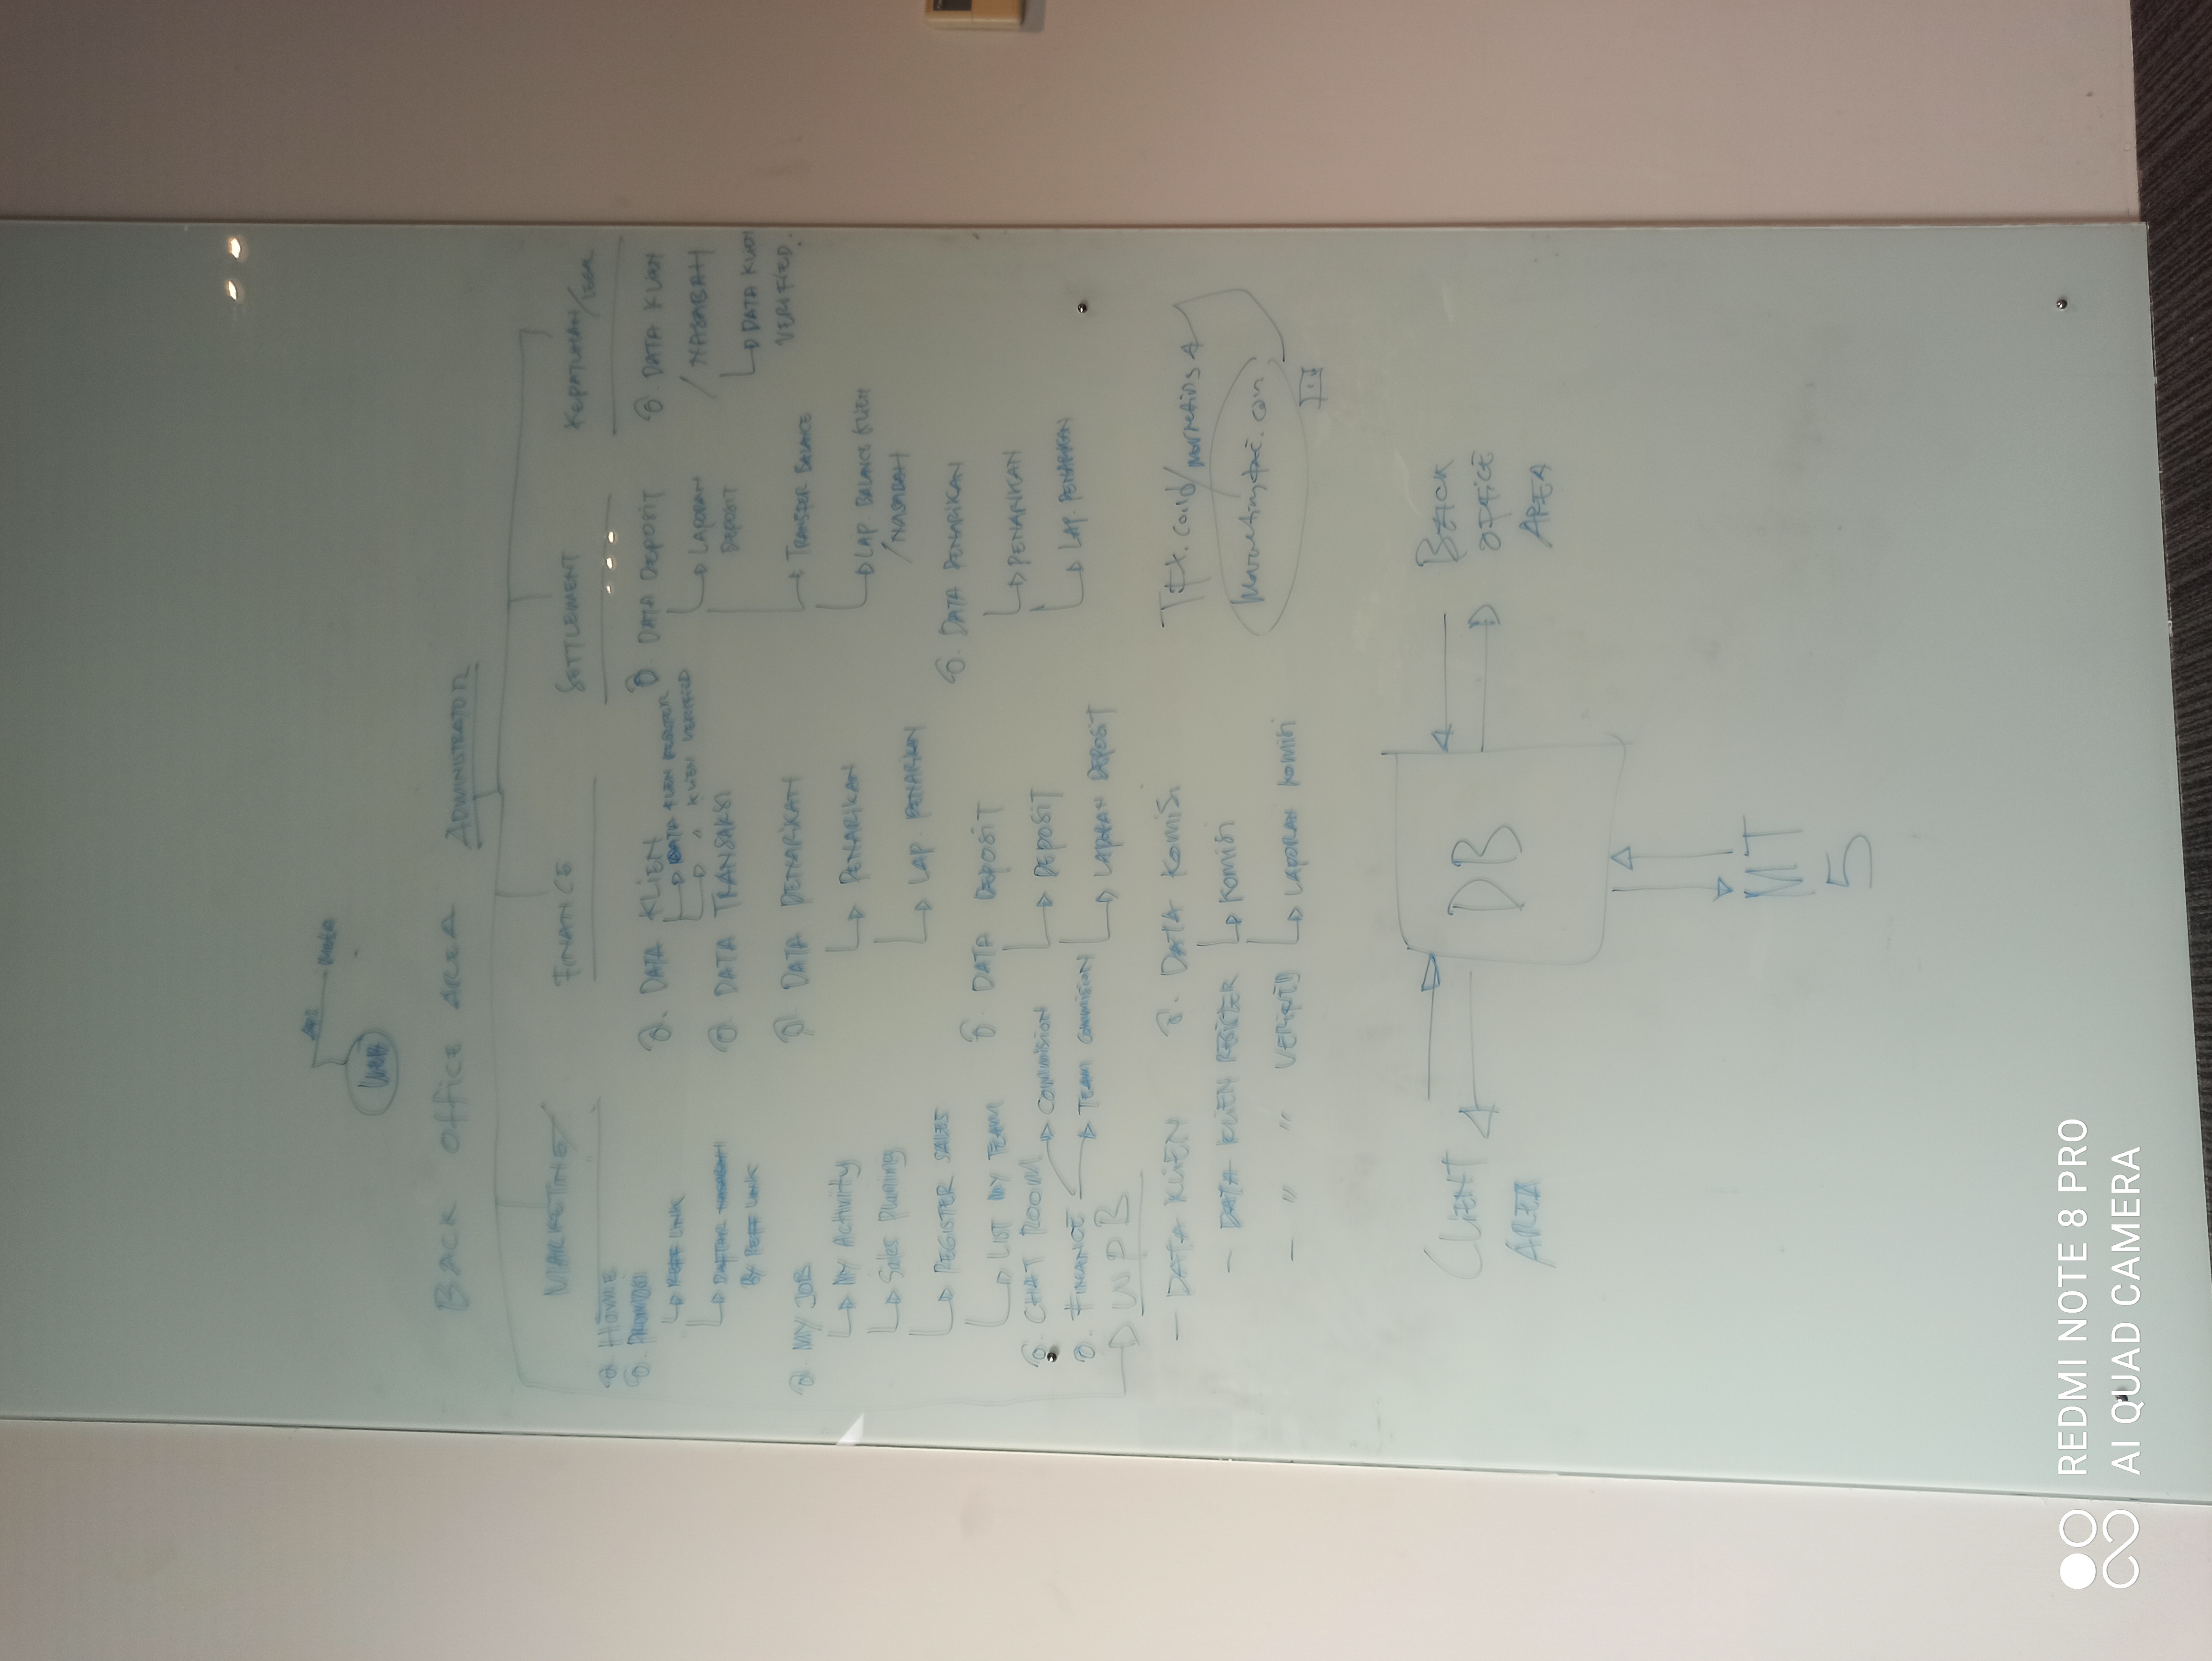 API
Meta
WEB
BACK OFFICE AREA ADMINISTRATOR
MARKETING
HOME
PROMOSI
REFF LINK
DAFTAR NASABAH
BY REFF LINK
MY JOB
My Activity
Sales Planing
REGISTER SALES
LIST MY TEAM
CHAT ROOM
FINANCE
COMMISION
TEAM COMMISION
WPB
- DATA KLIEN
- DATA KLIEN REGISTER
- " " VERIFIED
FINANCE
DATA KLIEN
DATA KLIEN REGISTER
" KLIEN VERIFIED
DATA TRANSAKSI
DATA PENARIKAN
PENARIKAN
LAP. PENARIKAN
DATA DEPOSIT
DEPOSIT
LAPORAN DEPOSIT
DATA KOMISI
KOMISI
LAPORAN KOMISI
SETTLEMENT
DATA DEPOSIT
LAPORAN
DEPOSIT
TRANSFER BALANCE
LAP BALANCE KLIEN
/NASABAH
DATA PENARIKAN
PENARIKAN
LAP. PENARIKAN
KEPATUHAN/LEGAL
DATA KLIEN
/ NASABAH
DATA KLIEN
VERIFIED.
CLIENT
AREA
DB
BACK
OFFICE
AREA
MT
5
REDMI NOTE 8 PRO
AI QUAD CAMERA